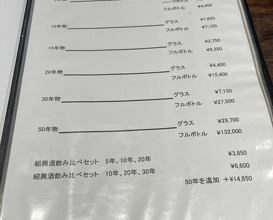 フルボトル ¥4,400
グラス ¥1,650
フルボトル ¥7,150
15年物 グラス ¥2,750
フルボトル ¥9,350
20年物 グラス ¥4,400
フルボトル ¥15,400
30年物 グラス ¥7,150
フルボトル ¥27,500
50年物 グラス ¥29,700
フルボトル ¥132,000
紹興酒飲み比べセット 5年、10年、20年 ¥3,850
紹興酒飲み比べセット 10年、20年、30年 ¥6,600
50年を追加 +¥14,850